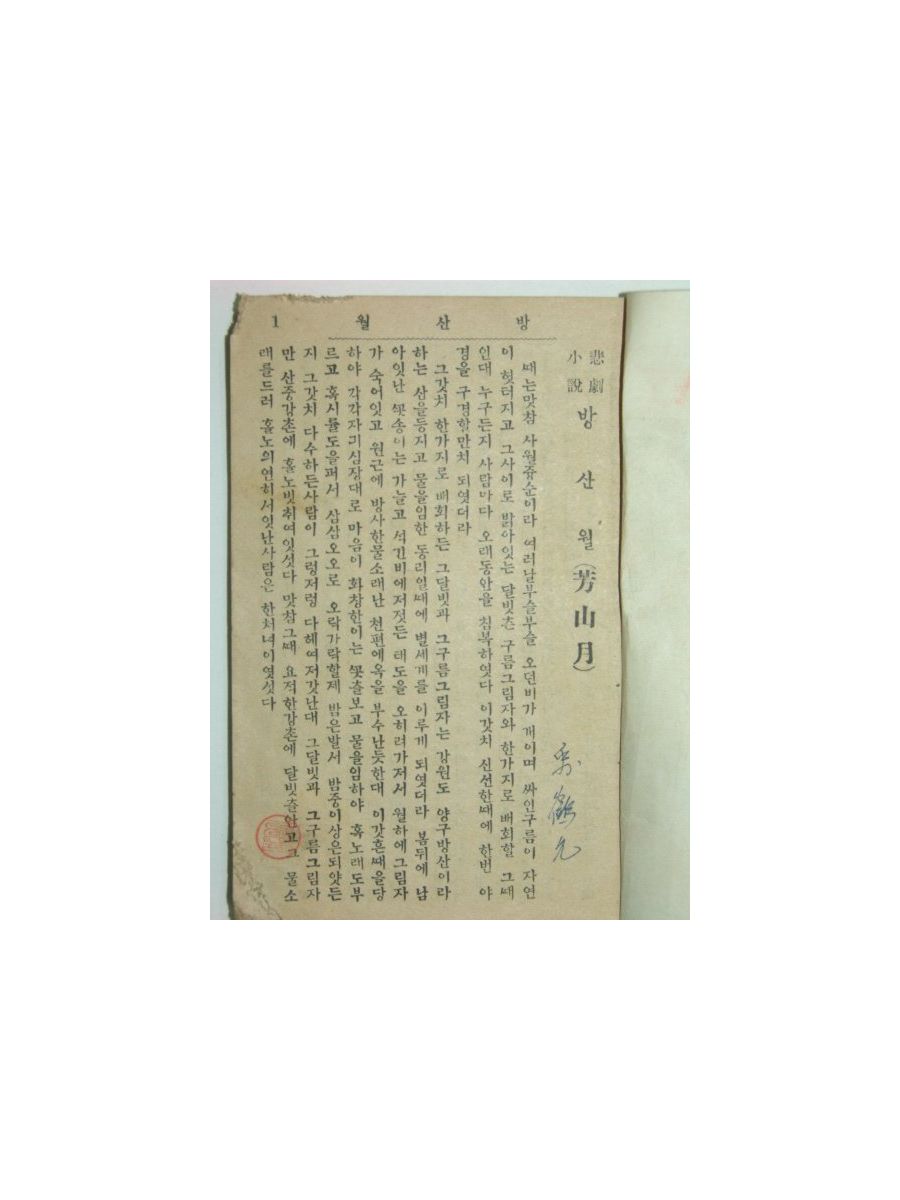 방산월 1
悲劇小說 방산월(芳山月)
때는맛참 사월즁순이라 여러날부슬부슬 오던비가 개이며 싸인구름이 자연
이 헛터지고 그사이로 밝아잇는 달빗츤 구름그림자와 한가지로 배회할 그때
인대 누구든지 사람마다 오래동안을 침복하엿다 이갓치 신선한때에 한번 야
경을 구경할만치 되엿더라
그갓치 한가지로 배회하든 그달빗과 그구름그림자는 강원도 양구방산이라
하는 산을등지고 물을임한 동리일때에 별세계를 이루게 되엿더라 봄뒤에 남
아잇난 꼿송이는 가늘고 석긴비에저젓든 태도을 오히려가저서 월하에그림자
가 숙어잇고 원근에 방사한물소래난 천편에옥을 부수난듯한대 이갓흔때을당
하야 각각자긔심장대로 마음이 화창한이는 꼿츨보고 물을임하야 혹노래도부
르고 혹시률도을퍼서 삼삼오오로 오락가락할제 밤은발서 밤중이상은되얏든
지 그갓치 다수하든사람이 그렁저렁 다헤여저갓난대 그달빗과 그구름그림자
만 산중강촌에 홀노빗취여잇섯다 맛참그때 요적한강촌에 달빗츨안고 그 물소
래를드러 홀노의연히서잇난사람은 한처녀이엿섯다